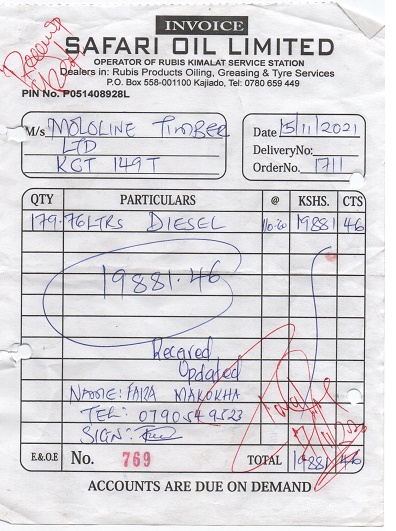 INVOICE
SAFARI OIL LIMITED
OPERATOR OF RUBIS KIMALAT SERVICE STATION
Dealers in: Rubis Products Oiling, Greasing & Tyre Services
P.O. Box 558-001100 Kajiado, Tel: 0780 659 449
PIN No. P051408928L
M/s MOLOLINE TIMBER
LTD
KCT 149T
Date 15/11/2021
DeliveryNo:
OrderNo. 1711
QTY PARTICULARS @ KSHS. CTS
179.76LTRS DIESEL 110.60 19881 46
19881.46
Received
Updated
NAME: FAIZA MAKOKHA
TEL: 0790549523
SIGN:
E.&O.E No. 769 TOTAL 19881 46
ACCOUNTS ARE DUE ON DEMAND